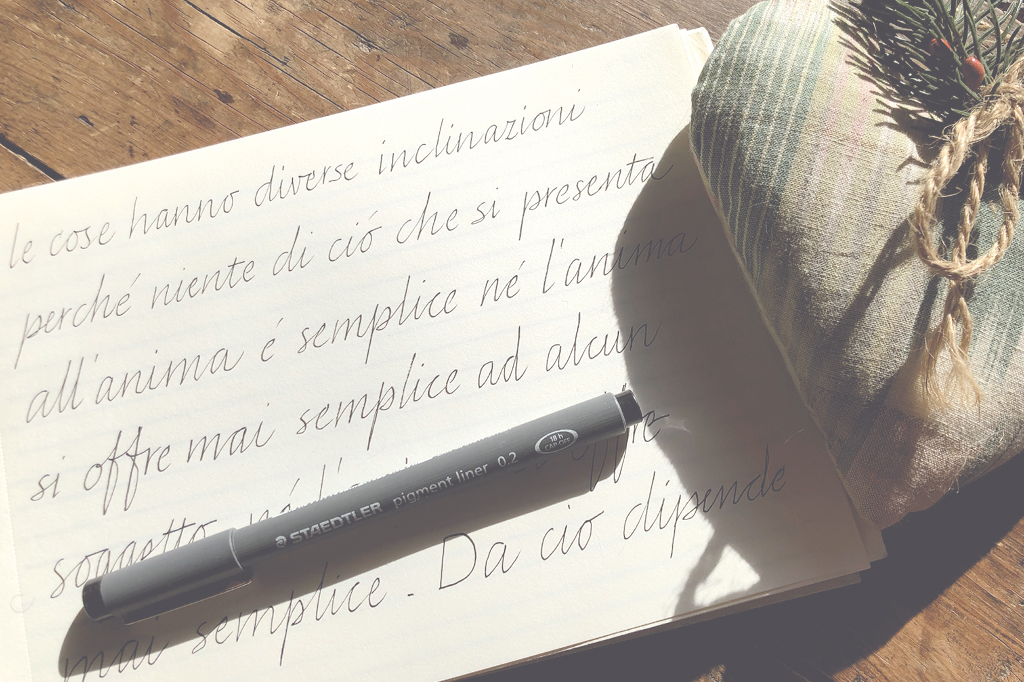 le cose hanno diverse inclinazioni
perché niente di ció che si presenta
all'anima é semplice né l'anima
si offre mai semplice ad alcun
soggetto né l' offre
mai semplice. Da cio dipende
STAEDTLER pigment liner 0.2
18 h
CAP-OFF